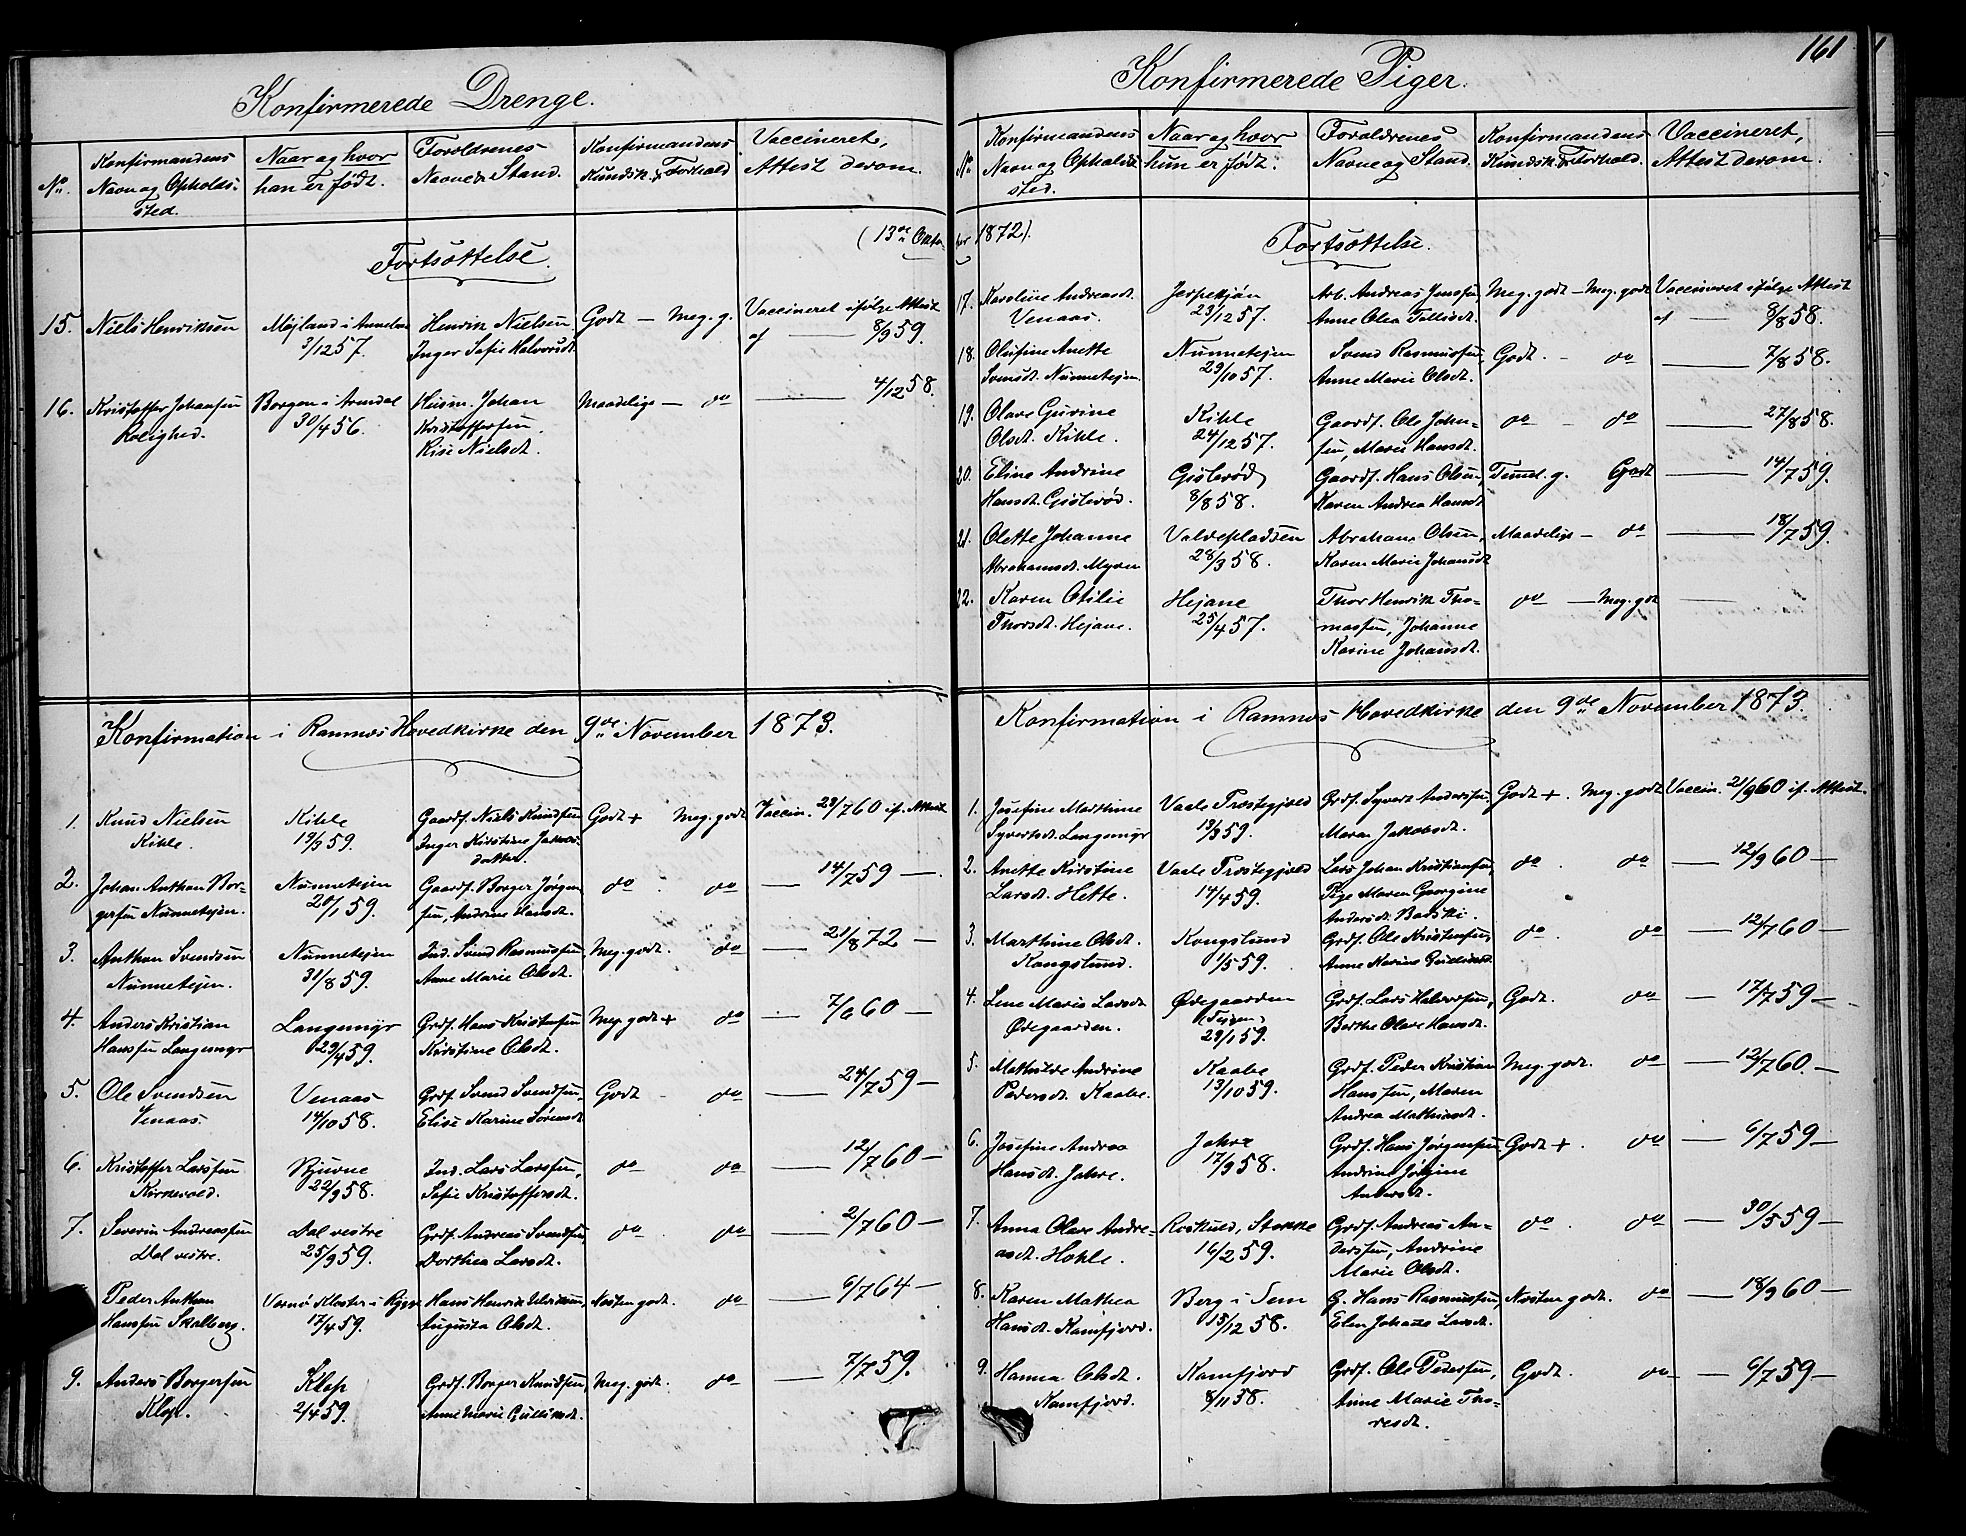 161
Konfirmerede Drenge.
No.
Konfirmandens
Navn og Opholds-
sted.
Naar og hvor
han er født.
Forældrenes
Navne & Stand.
Konfirmandens
Kundsk. & Forhold
Vaccineret,
Attest derom.
(13de Okto-
Fortsættelse.
15. Niels Henriksen
Møjland i
3/12 57.
Henrik Nielsen
Inger Sofie Halvorsdt.
Godt — Meg. g.
Vaccineret ifølge Attest
af — 8/9 59.
16. Kristoffer Johansen
Rolighed.
Borgen i Arendal
30/4 56.
Husm. Johan
Kristoffersen.
Lise Nielsdt.
Maadelige — do
— 4/12 58.
Konfirmation i Ramnæs Hovedkirke den 9de November 1873.
1. Knud Nielsen
Kihle.
Kihle
19/3 59.
Gaardf. Niels Knudsen
Inger Kirstine Jakobs-
datter.
Godt + Meg. godt
Vaccin. 23/7 60 if. Attest
2. Johan Anthon Bor-
gersen Nunnetejen.
Nunnetejen
20/1 59.
Gaardf. Borger Jørgen-
sen, Andrine Hansdt.
do . do
— 14/7 59 —
3. Anthon Svendsen
Nunnetejen.
Nunnetejen
31/8 59.
Ind. Svend Rasmussen
Anne Marie Olsdt.
Meg. godt. do
— 21/8 72 —
4. Anders Kristian
Hanssen Langemyr
Langemyr
29/4 59.
Grdf. Hans Kristensen
Kirstine Olsdt.
Meg. godt + do
— 7/6 60 —
5. Ole Svendsen
Venaas.
Venaas
14/10 58.
Grdf. Svend Svendsen,
Elise Karine Sørensdt
Godt - do
— 24/7 59 —
6. Kristoffer Larssen
Kirkevold.
Bjuvne
22/9 58.
Ind. Lars Larssen,
Sofie Kristoffersdt.
do do
— 12/7 60 —
7. Severin Andreassen
Dal vestre.
Dal vestre
25/9 59.
Grdf. Andreas Svendsen,
Dorthea Larsdt.
do . do
— 2/7 60 —
Peder Anthon
Hanssen Skalberg.
Varnø Kloster i Rygge
17/4 59.
Hans Henrik
Augusta Olsdt.
Næsten godt. do
— 6/7 64 —
9. Anders Borgersen
Klop.
Klop
2/4 59.
Grdf. Borger Knudsen,
Anne Marie Gulliksdt.
Meg. godt. do
— 7/7 59.
Konfirmerede Piger.
No
Konfirmandens
Navn og Opholds-
sted.
Naar og hvor
hun er født.
Forældrenes
Navne og Stand.
Konfirmandens
Kundsk. & Forhold.
Vaccineret,
Attest derom.
ber 1872).
Fortsættelse.
17. Karoline Andreasdt.
Venaas.
23/12 57.
Arb. Andreas Jenssen,
Anne Olea Tollisdt.
Meg. godt — Meg. godt
Vaccineret ifølge Attest
af — 8/8 58.
18. Olufine Anette
Svensdt. Nunnetejen.
Nunnetejen
29/10 57.
Svend Rasmussen,
Anne Marie Olsdt.
Godt. - do
— 7/8 58.
19. Olave Gurine
Olsdt. Kihle.
Kihle
24/12 57.
Gaardf. Ole John-
sen, Marie Hansdt.
do - do
— 27/8 58.
20. Eline Andrine
Hansdt. Gislerød.
Gislerød
8/8 58.
Gaardf. Hans Olsen,
Karen Andrea Hansdt
Temml. g. Godt
— 14/7 59.
21. Olette Johanne
Abrahamsdt. Myren
Valdepladsen
28/3 58.
Abraham Olsen,
Karen Marie Johansdt
Maadelige — do
— 18/7 59.
22. Karen Otilie
Thorsdt. Hejane.
Hejane
25/4 57.
Thor Henrik Tho-
massen, Johanne
Karine Johansdt.
do — Meg. godt
—
Konfirmation i Ramnæs Hovedkirke den 9de November 1873.
1. Josefine Marthine
Syvertsdt. Langemyr
Vaale Præstegjæld
13/3 59.
Grdf. Syvert Anderssen,
Maren Jakobsdt.
Godt +. Meg. godt
Vaccin. 21/9 60 if. Attest.
2. Anette Kirstine
Larsdt. Hette.
Vaale Præstegjæld
14/4 59.
Lars Johan Kristiansen,
Pige Maren Georgine
Andersdt.
do . do
— 12/9 60 —
3. Marthine Olsdt.
Kongslund.
Kongslund
1/5 59.
Grdf. Ole Kristensen,
Anne Karine
do . do
— 12/7 60 —
4. Lene Marie Larsdt
Ødegaarden.
Ødegaarden
(Tejen)
29/1 59.
Grdf. Lars Halvorsen,
Berthe Olave Hansdt.
Godt. do
— 17/7 59 —
5. Mathilde Andrine
Pedersdt. Kaabe.
Kaabe
13/10 59.
Grdf. Peder Kristian
Hanssen, Maren
Andrea Mathiasdt.
Meg. godt. do
— 12/7 60. —
6. Josefine Andrea
Hansdt. Jahre.
Jahre
17/9 58.
Grdf. Hans Jørgensen
Andrine Jørgine
Andersdt.
Godt +. do
— 6/7 59 —
7. Anna Olave Andre-
asdt. Hohle.
Roskuld, Stokke
16/2 59.
Grdf. Andreas An-
derssen, Andrine
Marie Olsdt.
do . do
— 30/5 59 —
8. Karen Mathea
Hansdt. Kamfjord.
Berg i Sem
15/12 58.
G. Hans Rasmussen,
Elen Johanne Larsdt.
Næsten godt. do
— 18/9 60 —
9. Hanna Olsdt.
Kamfjord.
Kamfjord
8/11 58.
Grdf. Ole Pederssen,
Anne Marie Tho-
resdt.
Godt. do
— 6/7 59 —